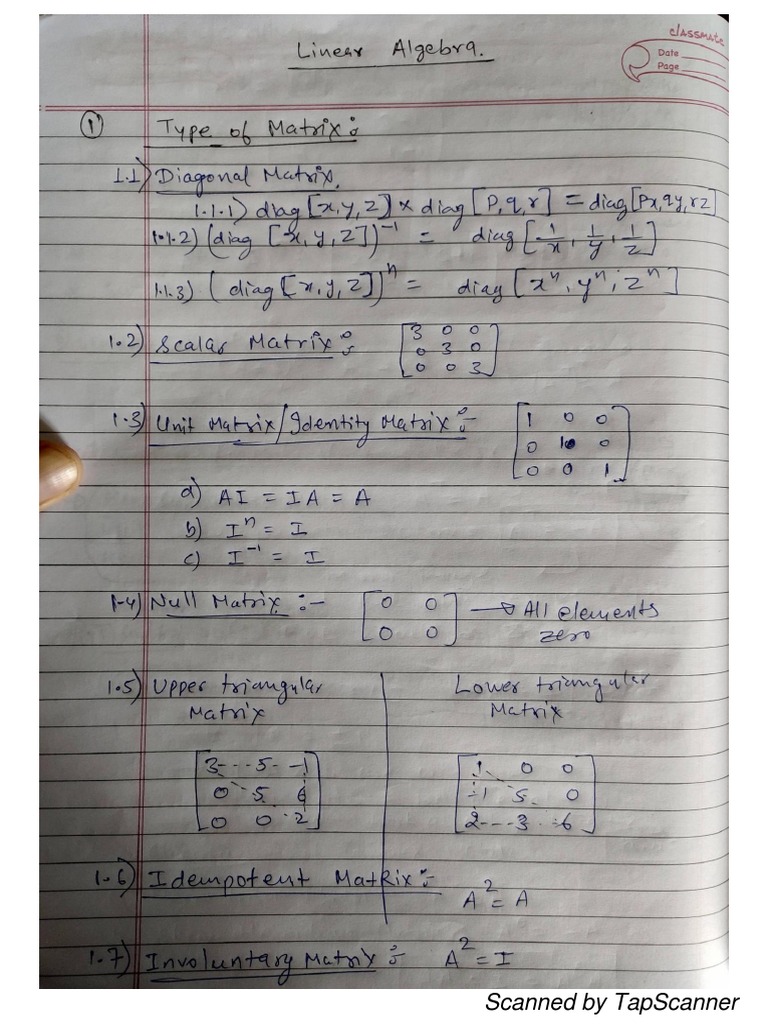 classmate
Date
Page
Linear Algebra.
① Type of Matrix:
1.1) Diagonal Matrix.
1.1.1) diag [x,y,z] × diag [P,q,r] = diag[Px,qy,rz]
1.1.2) (diag [x,y,z])⁻¹ = diag [1/x, 1/y, 1/z]
1.1.3) (diag [x,y,z])ⁿ = diag [xⁿ, yⁿ, zⁿ]
1.2) Scalar Matrix:
3 0 0
0 3 0
0 0 3
1.3) Unit Matrix/Identity Matrix:-
1 0 0
0 1 0
0 0 1
a) AI = IA = A
b) Iⁿ = I
c) I⁻¹ = I
1.4) Null Matrix :-
0 0
0 0
→ All elements
zero
1.5) Upper triangular
Matrix
3 5 -1
0 5 6
0 0 2
Lower triangular
Matrix
1 0 0
-1 5 0
2 3 -6
1.6) Idempotent MatRix:- A² = A
1.7) Involuntary Matrix:- A² = I
Scanned by TapScanner